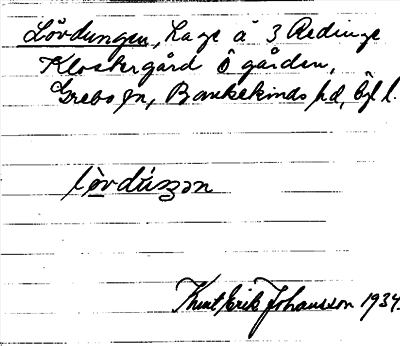 Lövdungen, hage å 3 Redinge
Klostergård Ö gården,
Grebo sn, Bankekinds hd, Ögl l.
lòvdúŋən
Knut Erik Johansson 1934.